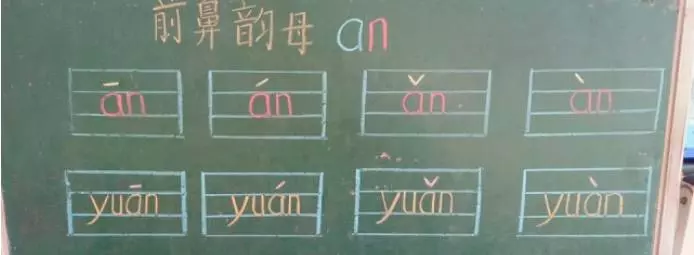 前鼻韵母 an
ān án ǎn àn
yuān yuán yuǎn yuàn